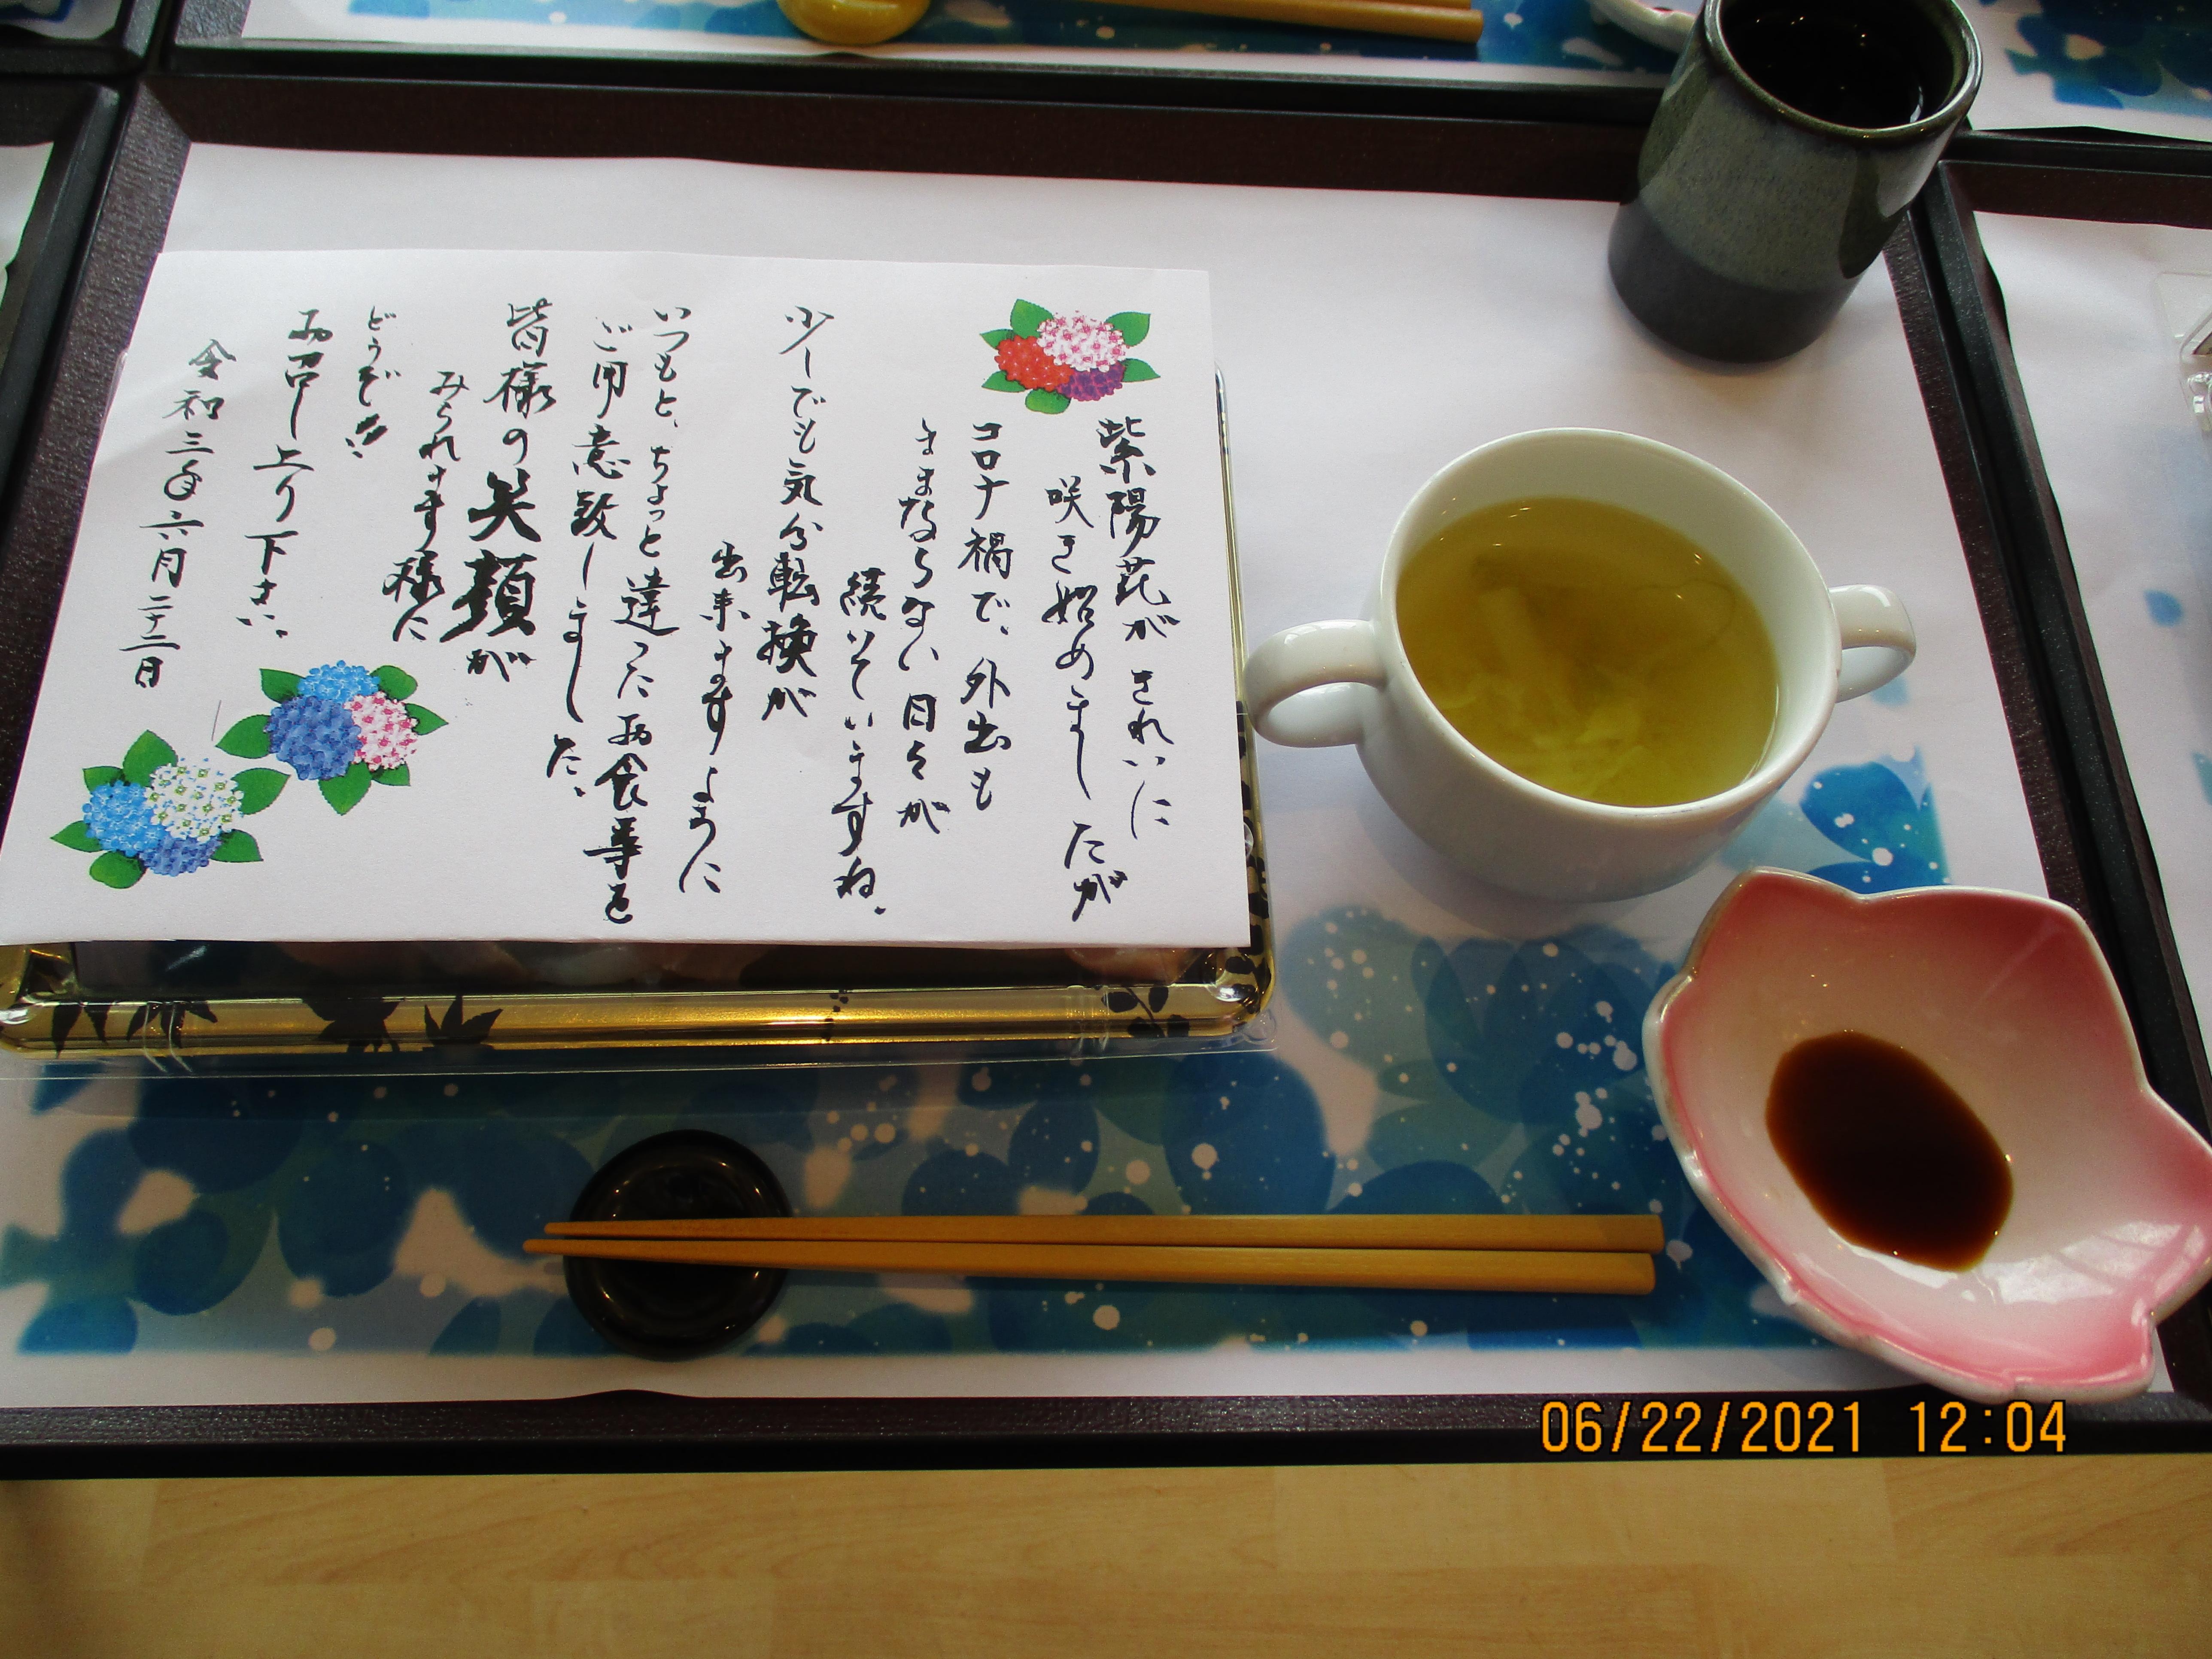 紫陽花がきれいに
咲き始めましたが
コロナ禍で、外出も
ままならない日々が
続いていますね。
少しでも気分転換が
出来ますように
いつもと、ちょっと違ったお食事を
ご用意致しました。
皆様の笑顔が
みられます様に
どうぞ!!
お召し上り下さい。
令和三年六月二十二日
06/22/2021 12:04